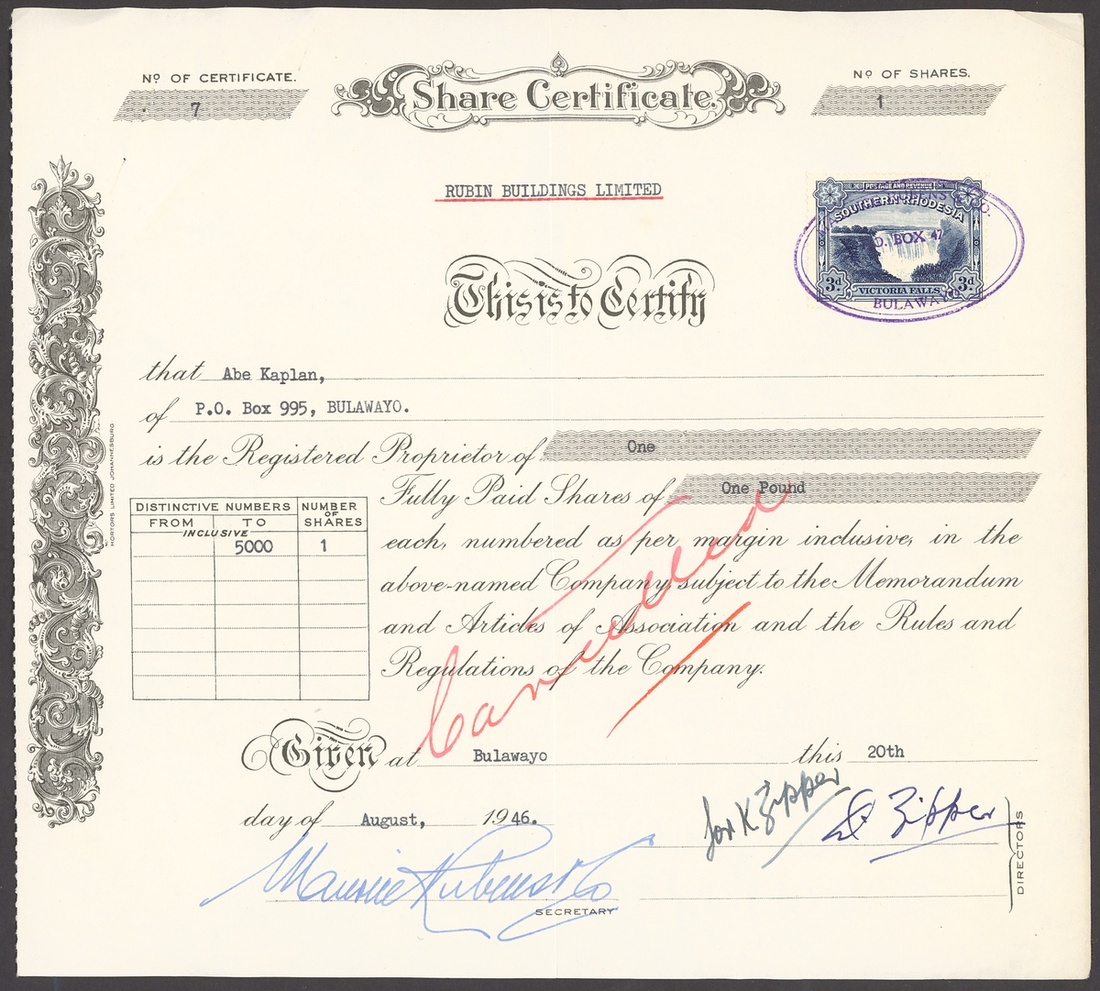 Nọ OF CERTIFICATE.
7
Share Certificate.
Nọ OF SHARES.
1
RUBIN BUILDINGS LIMITED
POSTAGE AND REVENUE
SOUTHERN RHODESIA
3d VICTORIA FALLS 3d
O. BOX 47
BULAWAYO
This is to Certify
that Abe Kaplan,
of P.O. Box 995, BULAWAYO.
is the Registered Proprietor of One
Fully Paid Shares of One Pound
each, numbered as per margin inclusive, in the
above-named Company, subject to the Memorandum
and Articles of Association and the Rules and
Regulations of the Company.
DISTINCTIVE NUMBERS NUMBER OF SHARES
FROM TO
INCLUSIVE
5000 1
HORTORS LIMITED JOHANNESBURG
Cancelled
Given at Bulawayo this 20th
day of August, 1946.
for K Zipper
Zipper
DIRECTORS
Maurice Rubens & Co
SECRETARY